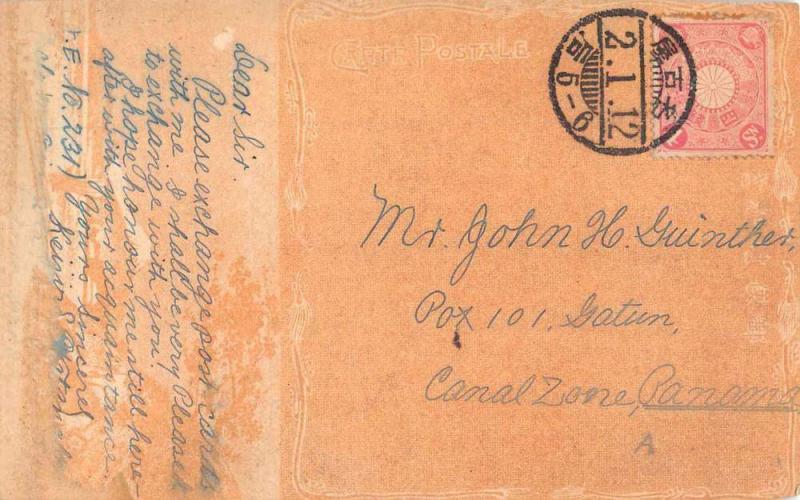 CARTE POSTALE
名古屋
2.1.12
后5-6
Dear Sir.
Please exchange post cards
with me. I shall be very Pleased
to exchange with you.
I hope honour me still here-
after with your acquaintance.
E. No. 231) Yours Sincerely
Mr. John H. Guinther,
Pox 101, Gatun,
Canal Zone, Panama
A